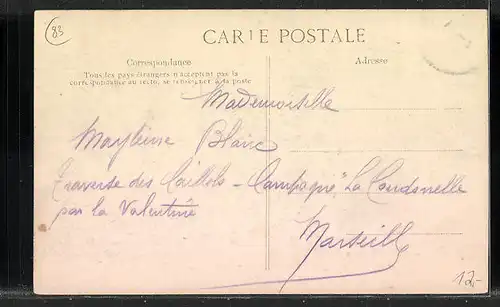 83
CARTE POSTALE
Correspondance
Adresse
Tous les pays étrangers n'acceptent pas la
correspondance au recto, se renseigner à la poste
Mademoiselle
Blanc
Traverse des Caillols - Campagne "La
par la Valentine
Marseille
12-